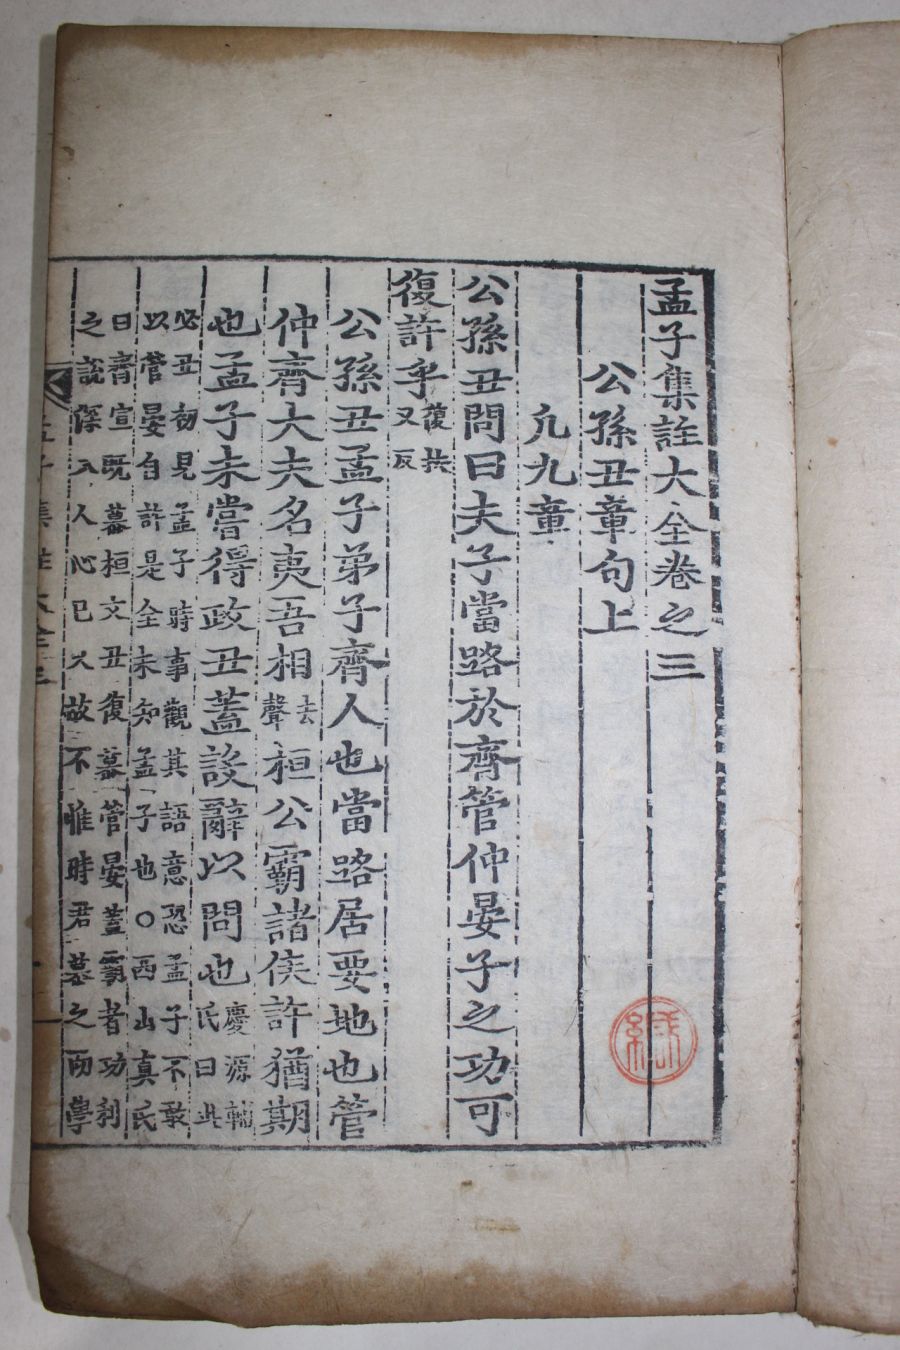 孟子集註大全卷之三
公孫丑章句上
凡九章
公孫丑問曰夫子當路於齊管仲晏子之功可
復許乎復扶又反
公孫丑孟子弟子齊人也當路居要地也管
仲齊大夫名夷吾相去聲桓公霸諸侯許猶期
也孟子未嘗得政丑蓋設辭以問也慶源輔氏曰此
必丑初見孟子時事觀其語意恐孟子不敢
以管晏自許是全未知孟子也○西山真氏
曰齊宣既慕桓文丑復慕管晏蓋霸者功利
之說深入人心已久故不惟時君慕之而學
孟子集註大全三